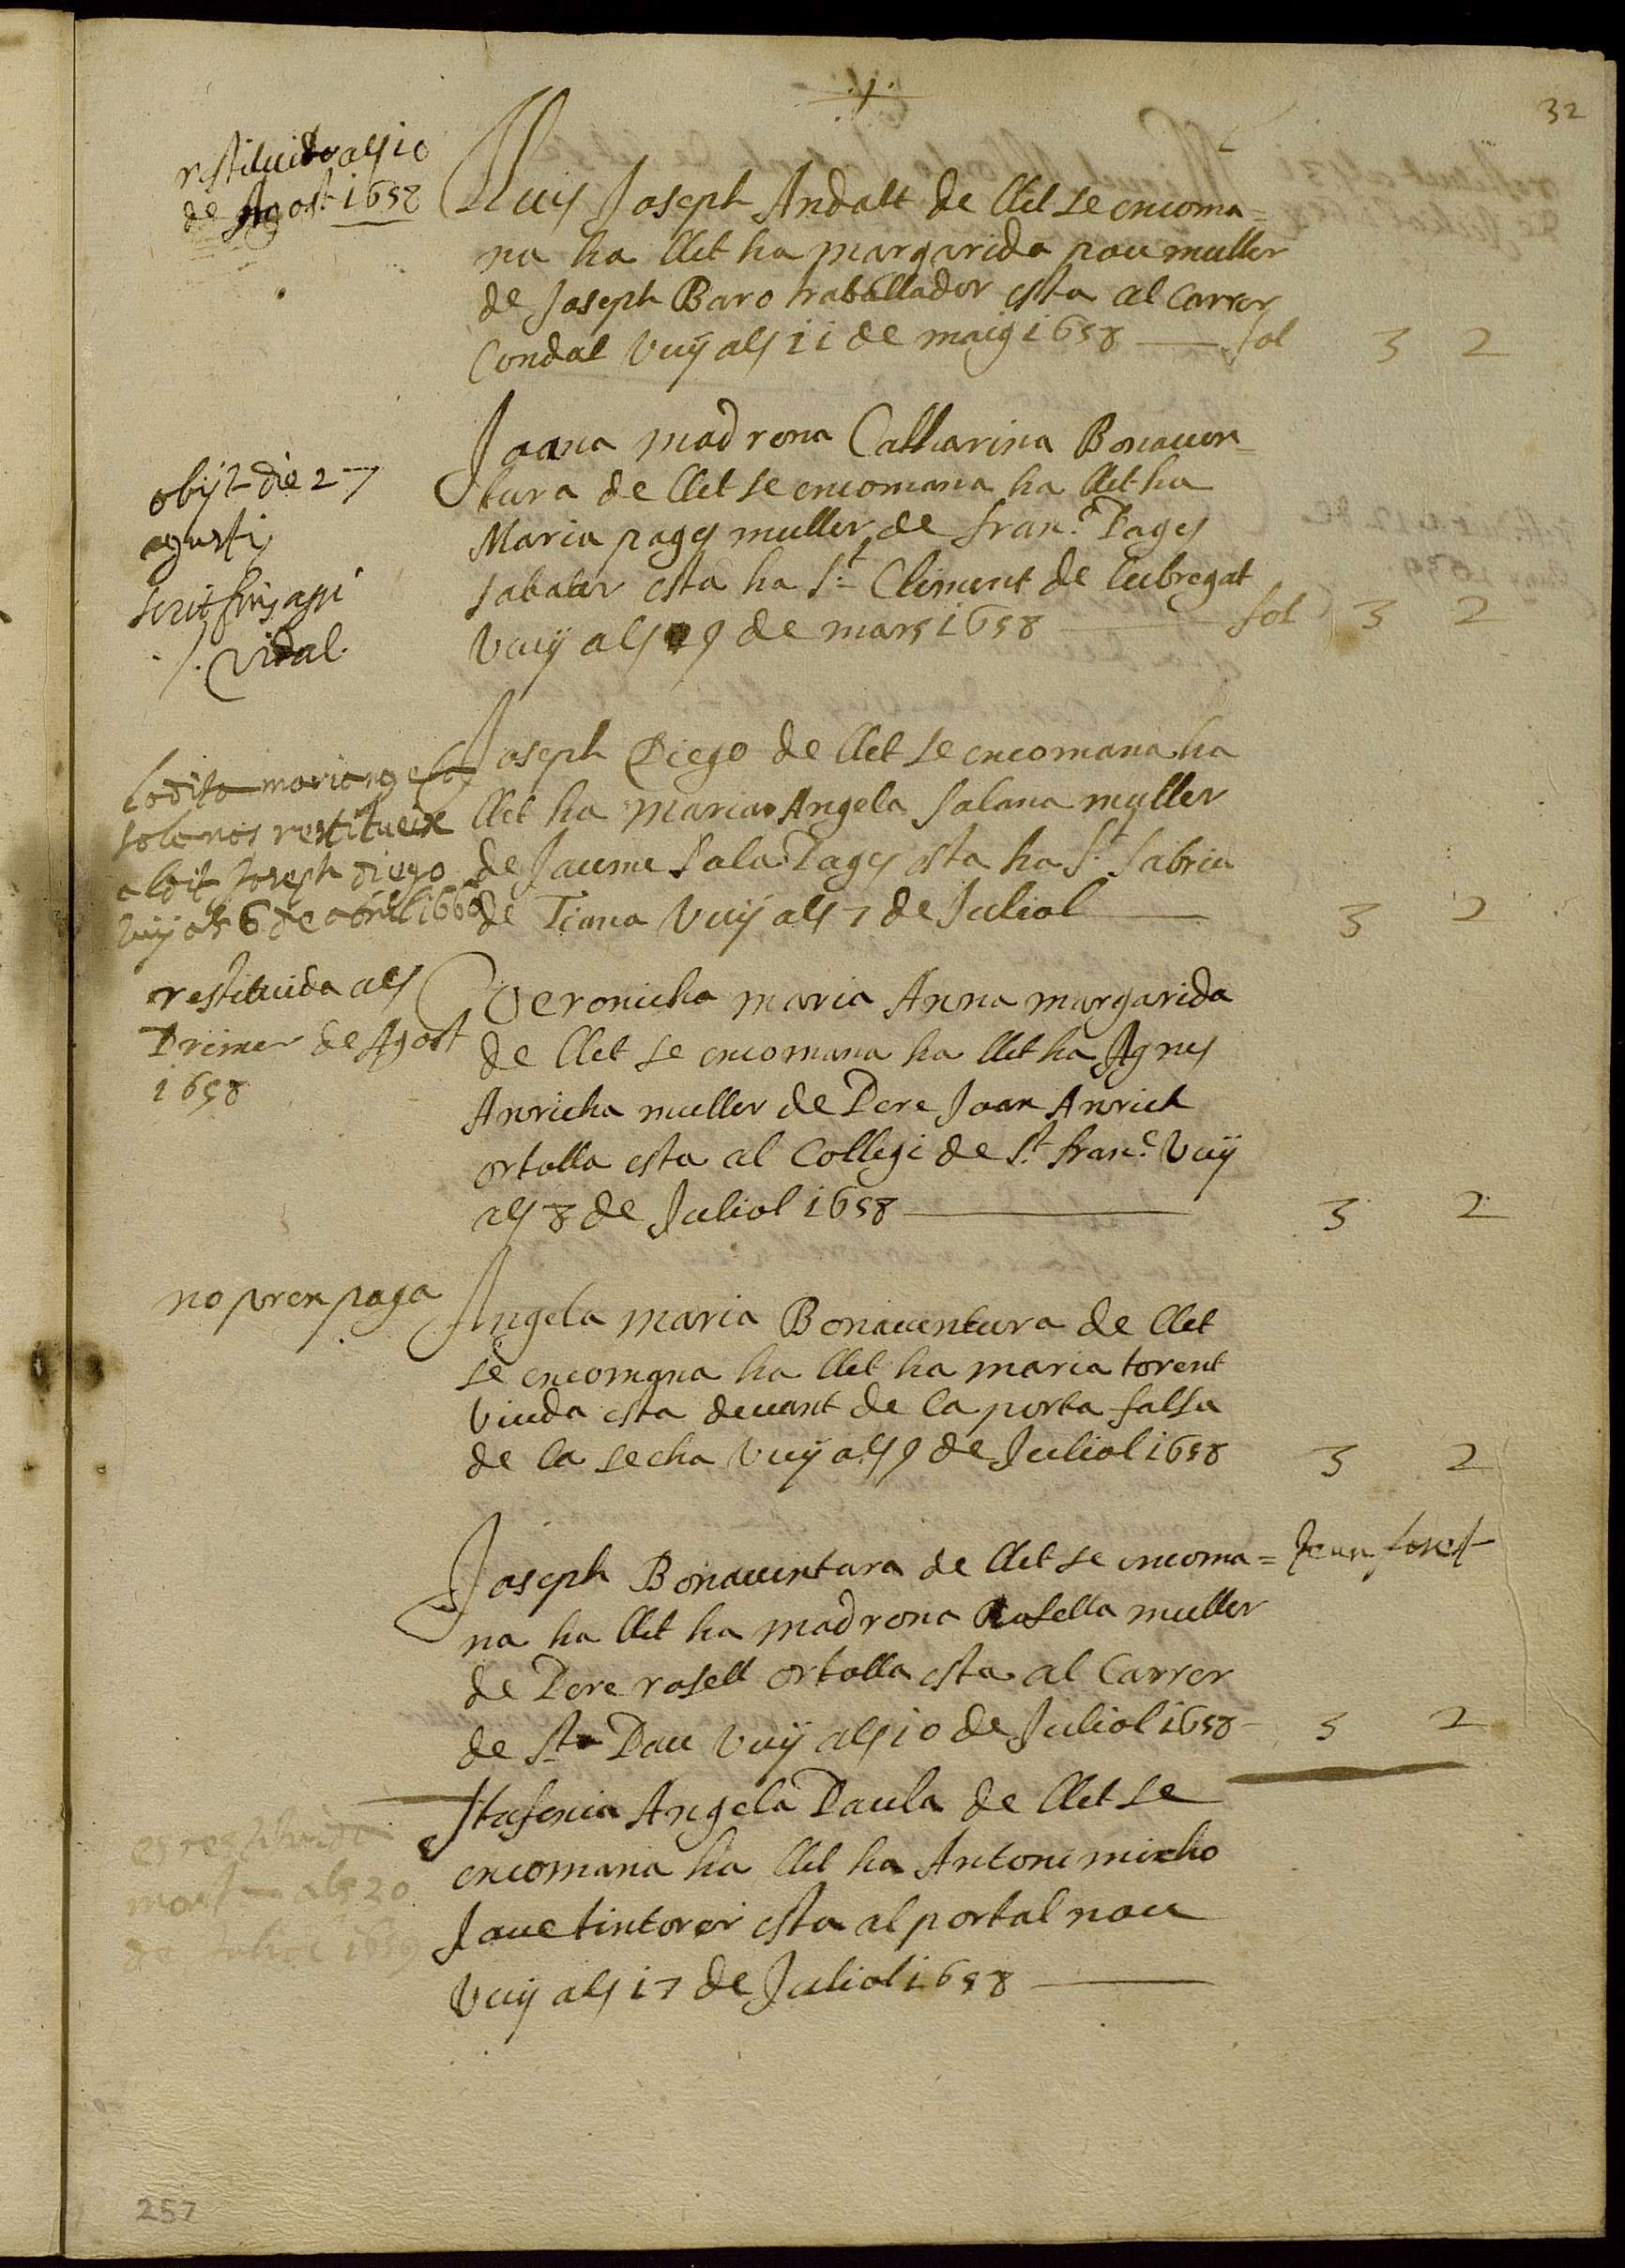 32
restituida als 10
de Agost 1658
Lluis Joseph Andalt de llet se encoma=
na ha llet ha margarida pau muller
de Joseph Baro traballador esta al Carrer
Condal Vuÿ als 11 de maig 1658 — fol 3 2
obijt die 27
agusti
vidal
Joana madrona Catharina Bonauen=
tura de llet se encomana ha llet ha
Maria pages muller de fran.ᶜ Pages
sabater esta ha S.ᵗ Climent de lubregat
Vuÿ als 9 de mars 1658 — fol 3 2
lo dita mariangela
solanos restitueix
al dit Joseph diego
vuÿ als 6 de abril 1660
Joseph Diego de llet se encomana ha
llet ha maria Angela salana muller
de Jaume Sala Pages esta ha S.ᵗ Sabria
de Tiana Vuÿ als 7 de Juliol — 3 2
restituida als
Primer de Agost
1658
Veronicha maria Anna margarida
de llet se encomana ha llet ha Agnes
Anricha muller de Pere Joan Anrich
ortolla esta al Collegi de S.ᵗ fran.ᶜ Vuÿ
als 8 de Juliol 1658 — 3 2
no pren paga
Angela maria Bonauentura de llet
se encomana ha llet ha maria torent
Viuda esta deuant de la porta falsa
de la secha Vuÿ als 9 de Juliol 1658 3 2
Joseph Bonauentura de llet se encoma=
na ha llet ha madrona Rosella muller
de Pere rosell ortolla esta al Carrer
de S.ᵗ Pau Vuÿ als 10 de Juliol 1658 3 2
es restituida
morta als 20
de Juliol 1659
Stafenia Angela Paula de llet se
encomana ha llet ha Antoni micho
Jaue tintorer esta al portal nou
Vuÿ als 17 de Juliol 1658 —
257